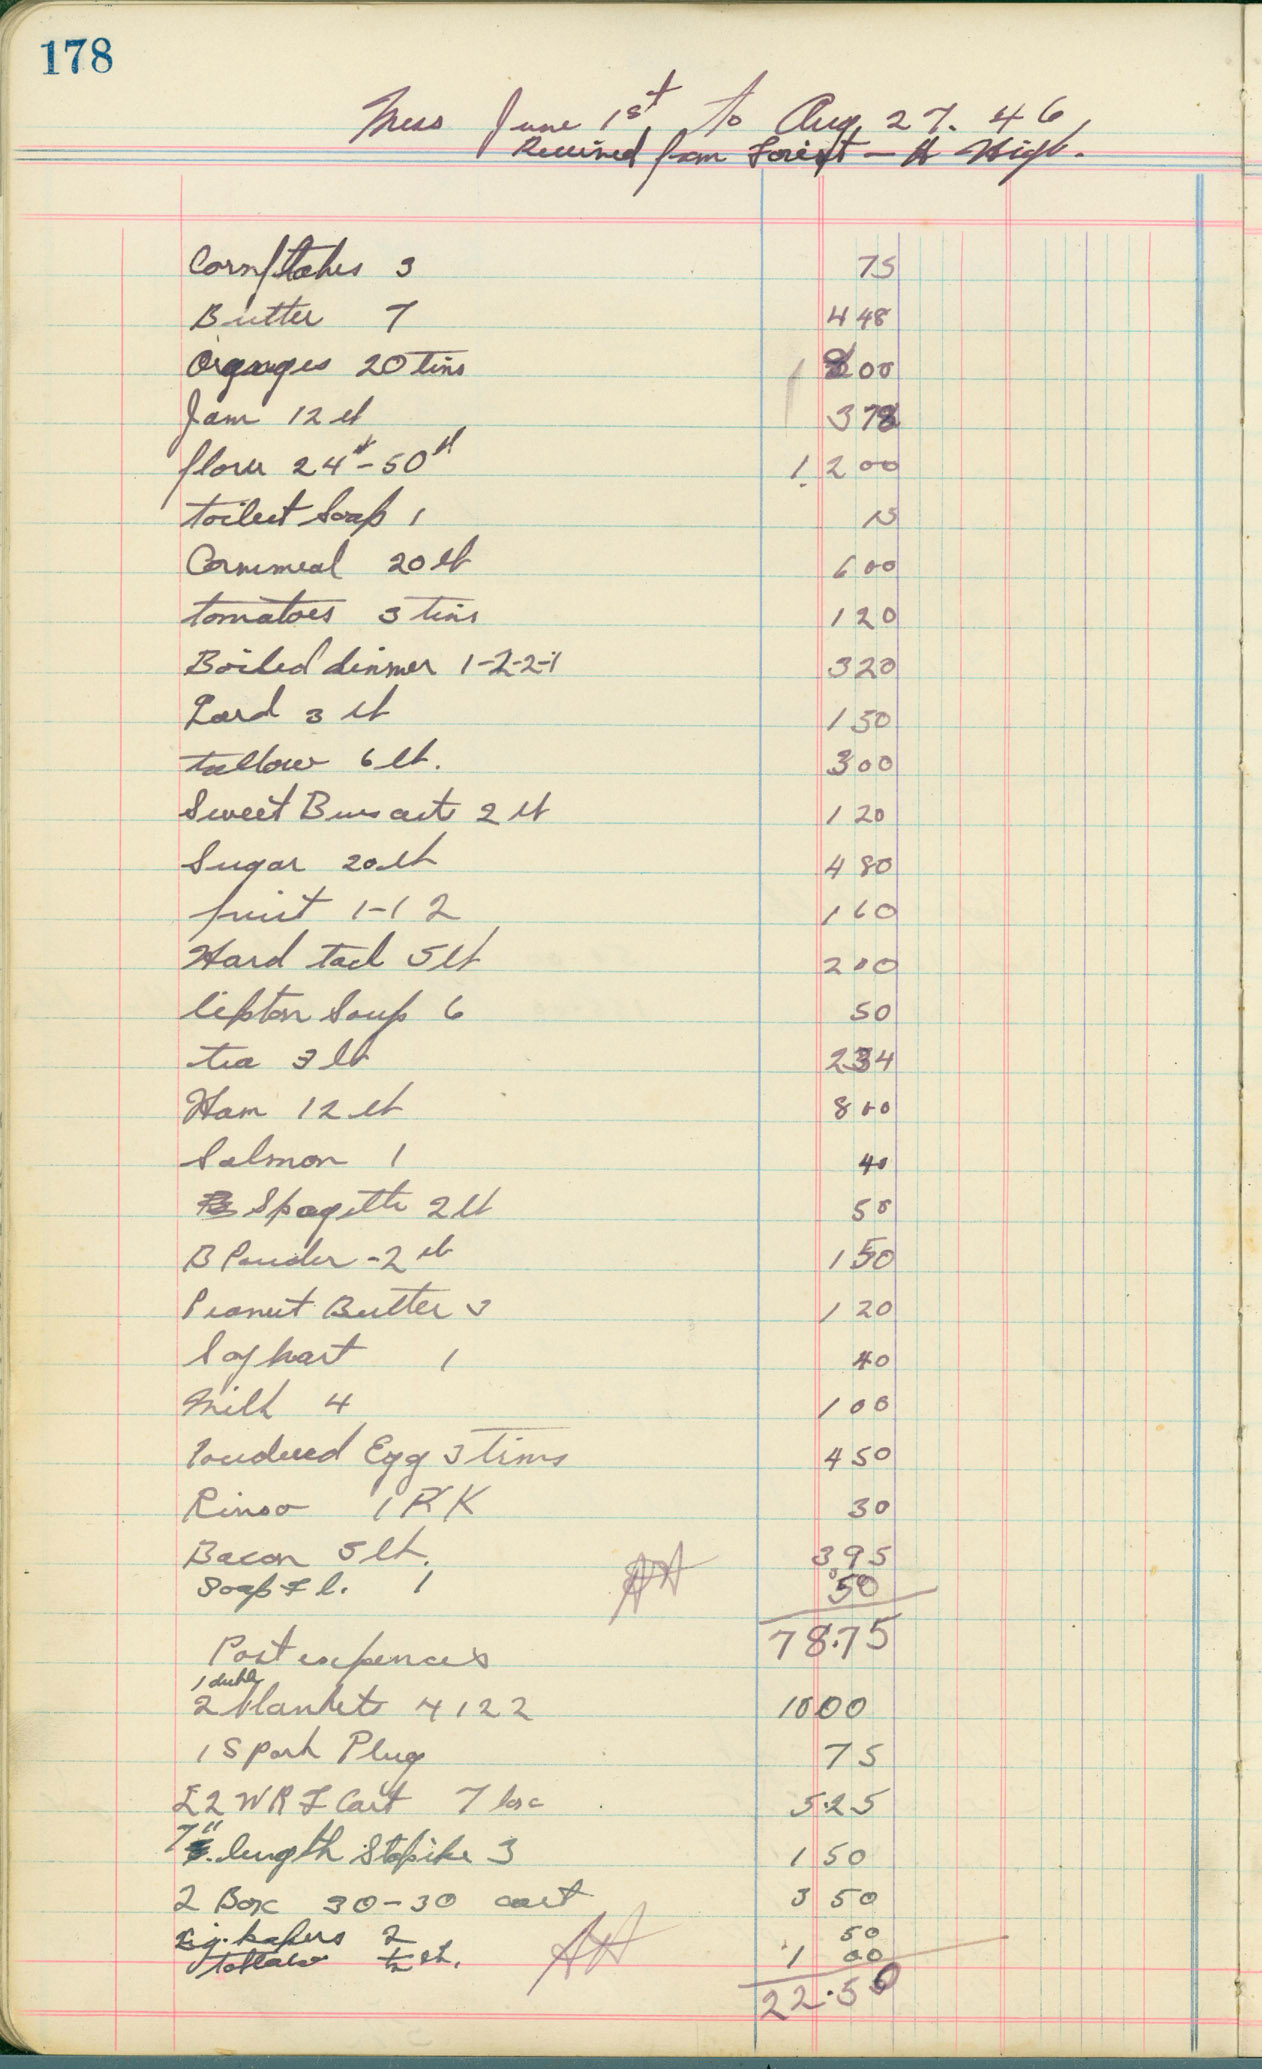 178
Mess June 1st to Aug. 27. 46
Received from Forest - H High.
Cornflakes 3 75
Butter 7 4 48
Organges 20 tins 1 200
Jam 12 lb 3 78
flour 24# - 50# 1 200
toilet Soap 1 15
Cornmeal 20 lb 6 00
tomatoes 3 tins 1 20
Boiled dinner 1-2-2-1 3 20
Lard 3 lb 1 50
tallow 6 lb. 3 00
Sweet 2 lb 1 20
Sugar 20 lb 4 80
fruit 1-1 2 1 60
Hard tack 5 lb 2 00
lipton Soup 6 50
tea 3 lb 2 34
Ham 12 lb 8 00
Salmon 1 40
Spagette 2 lb 50
B Pouder - 2 lb 1 50
Peanut Butter 3 1 20
1 40
Milk 4 1 00
Poudered Egg 3 tins 4 50
Rinso 1 PK 30
Bacon 5 lb. 3 95
Soap F l. 1 50
78.75
Post expences
1 duble
2 blankets 4122 10 00
1 Spark Plug 75
22 WRF Cart 7 box 5.25
7" length Stopike 3 1 50
2 Box 30-30 cart 3 50
Cig. papers 2 50
tobaco ½ lb. 1 00
22.50